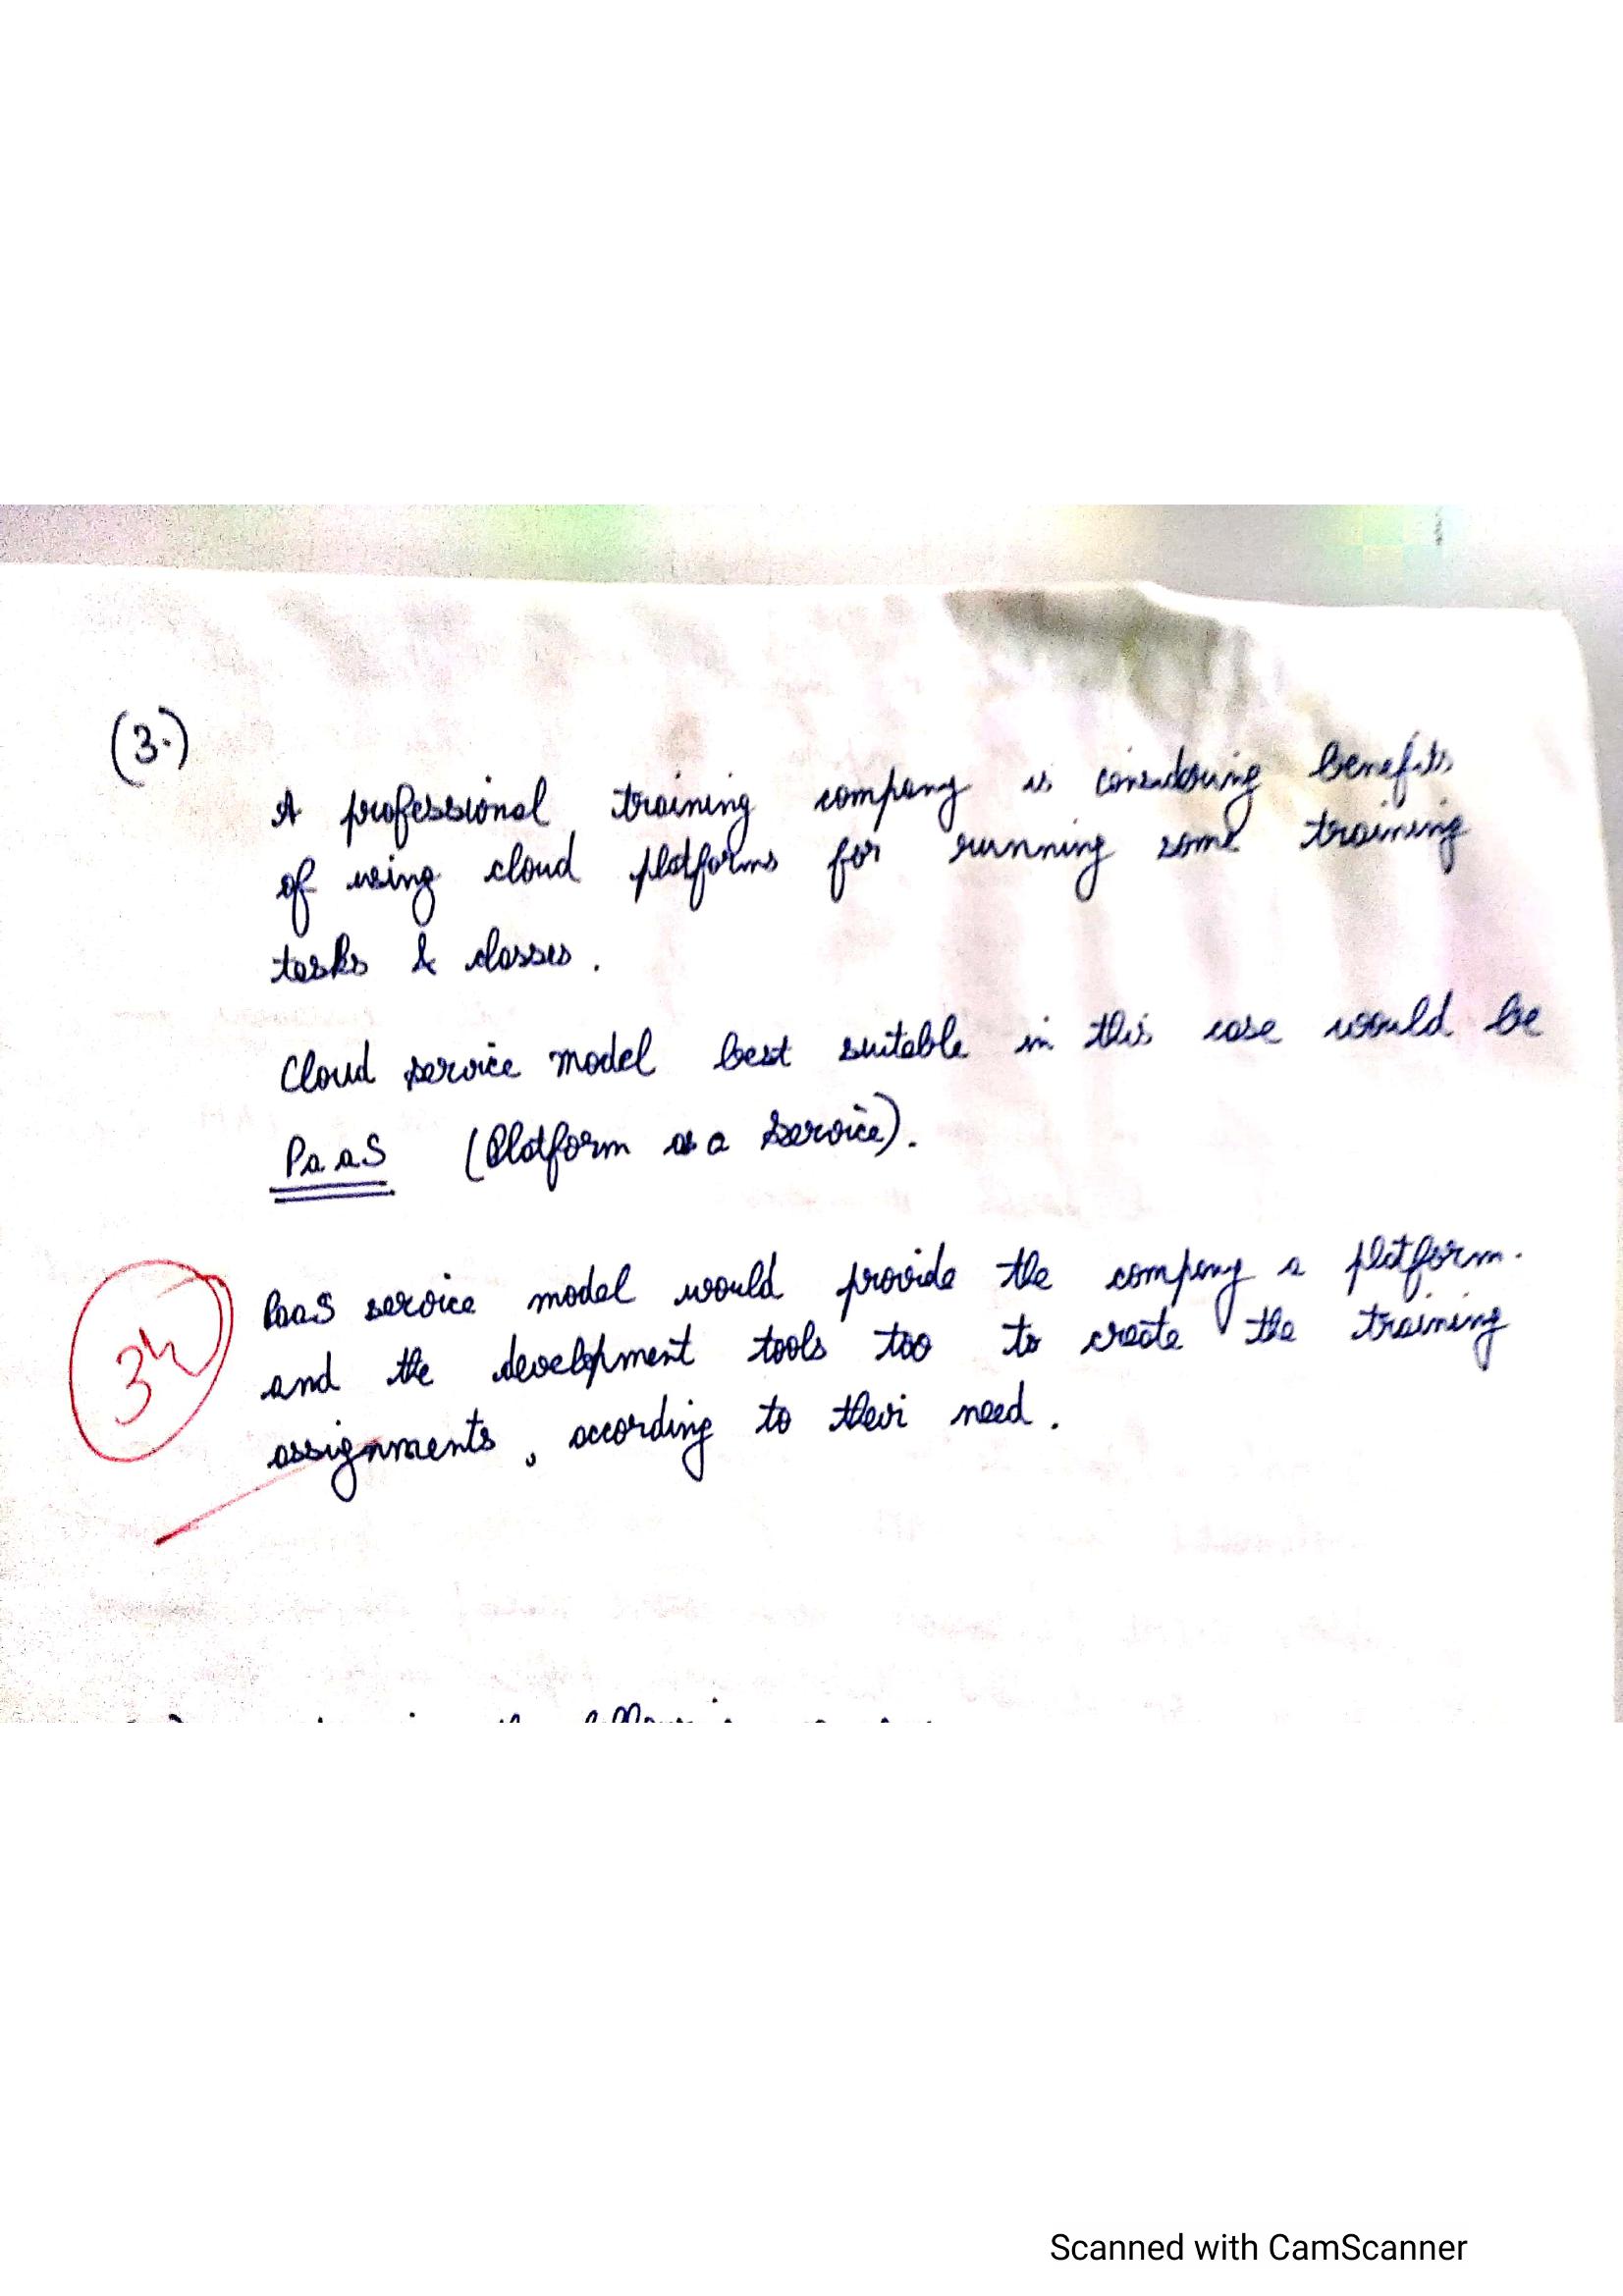 (3.)
A professional training company is considering benefits
of using cloud platforms for running some training
tasks & classes.
Cloud service model best suitable in this case would be
PaaS (Platform as a Service).
PaaS service model would provide the company a platform.
and the development tools too to create the training
assignments, according to their need.
3½
the following
Scanned with CamScanner